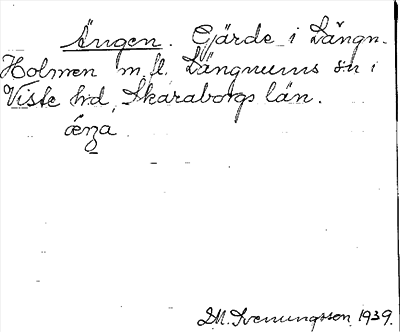 Ängen. Gärde i Längn.
Holmen m.fl. Längnums sn i
Viste hd, Skaraborgs län.
ænₐa
D.M. Svenungsson 1939.